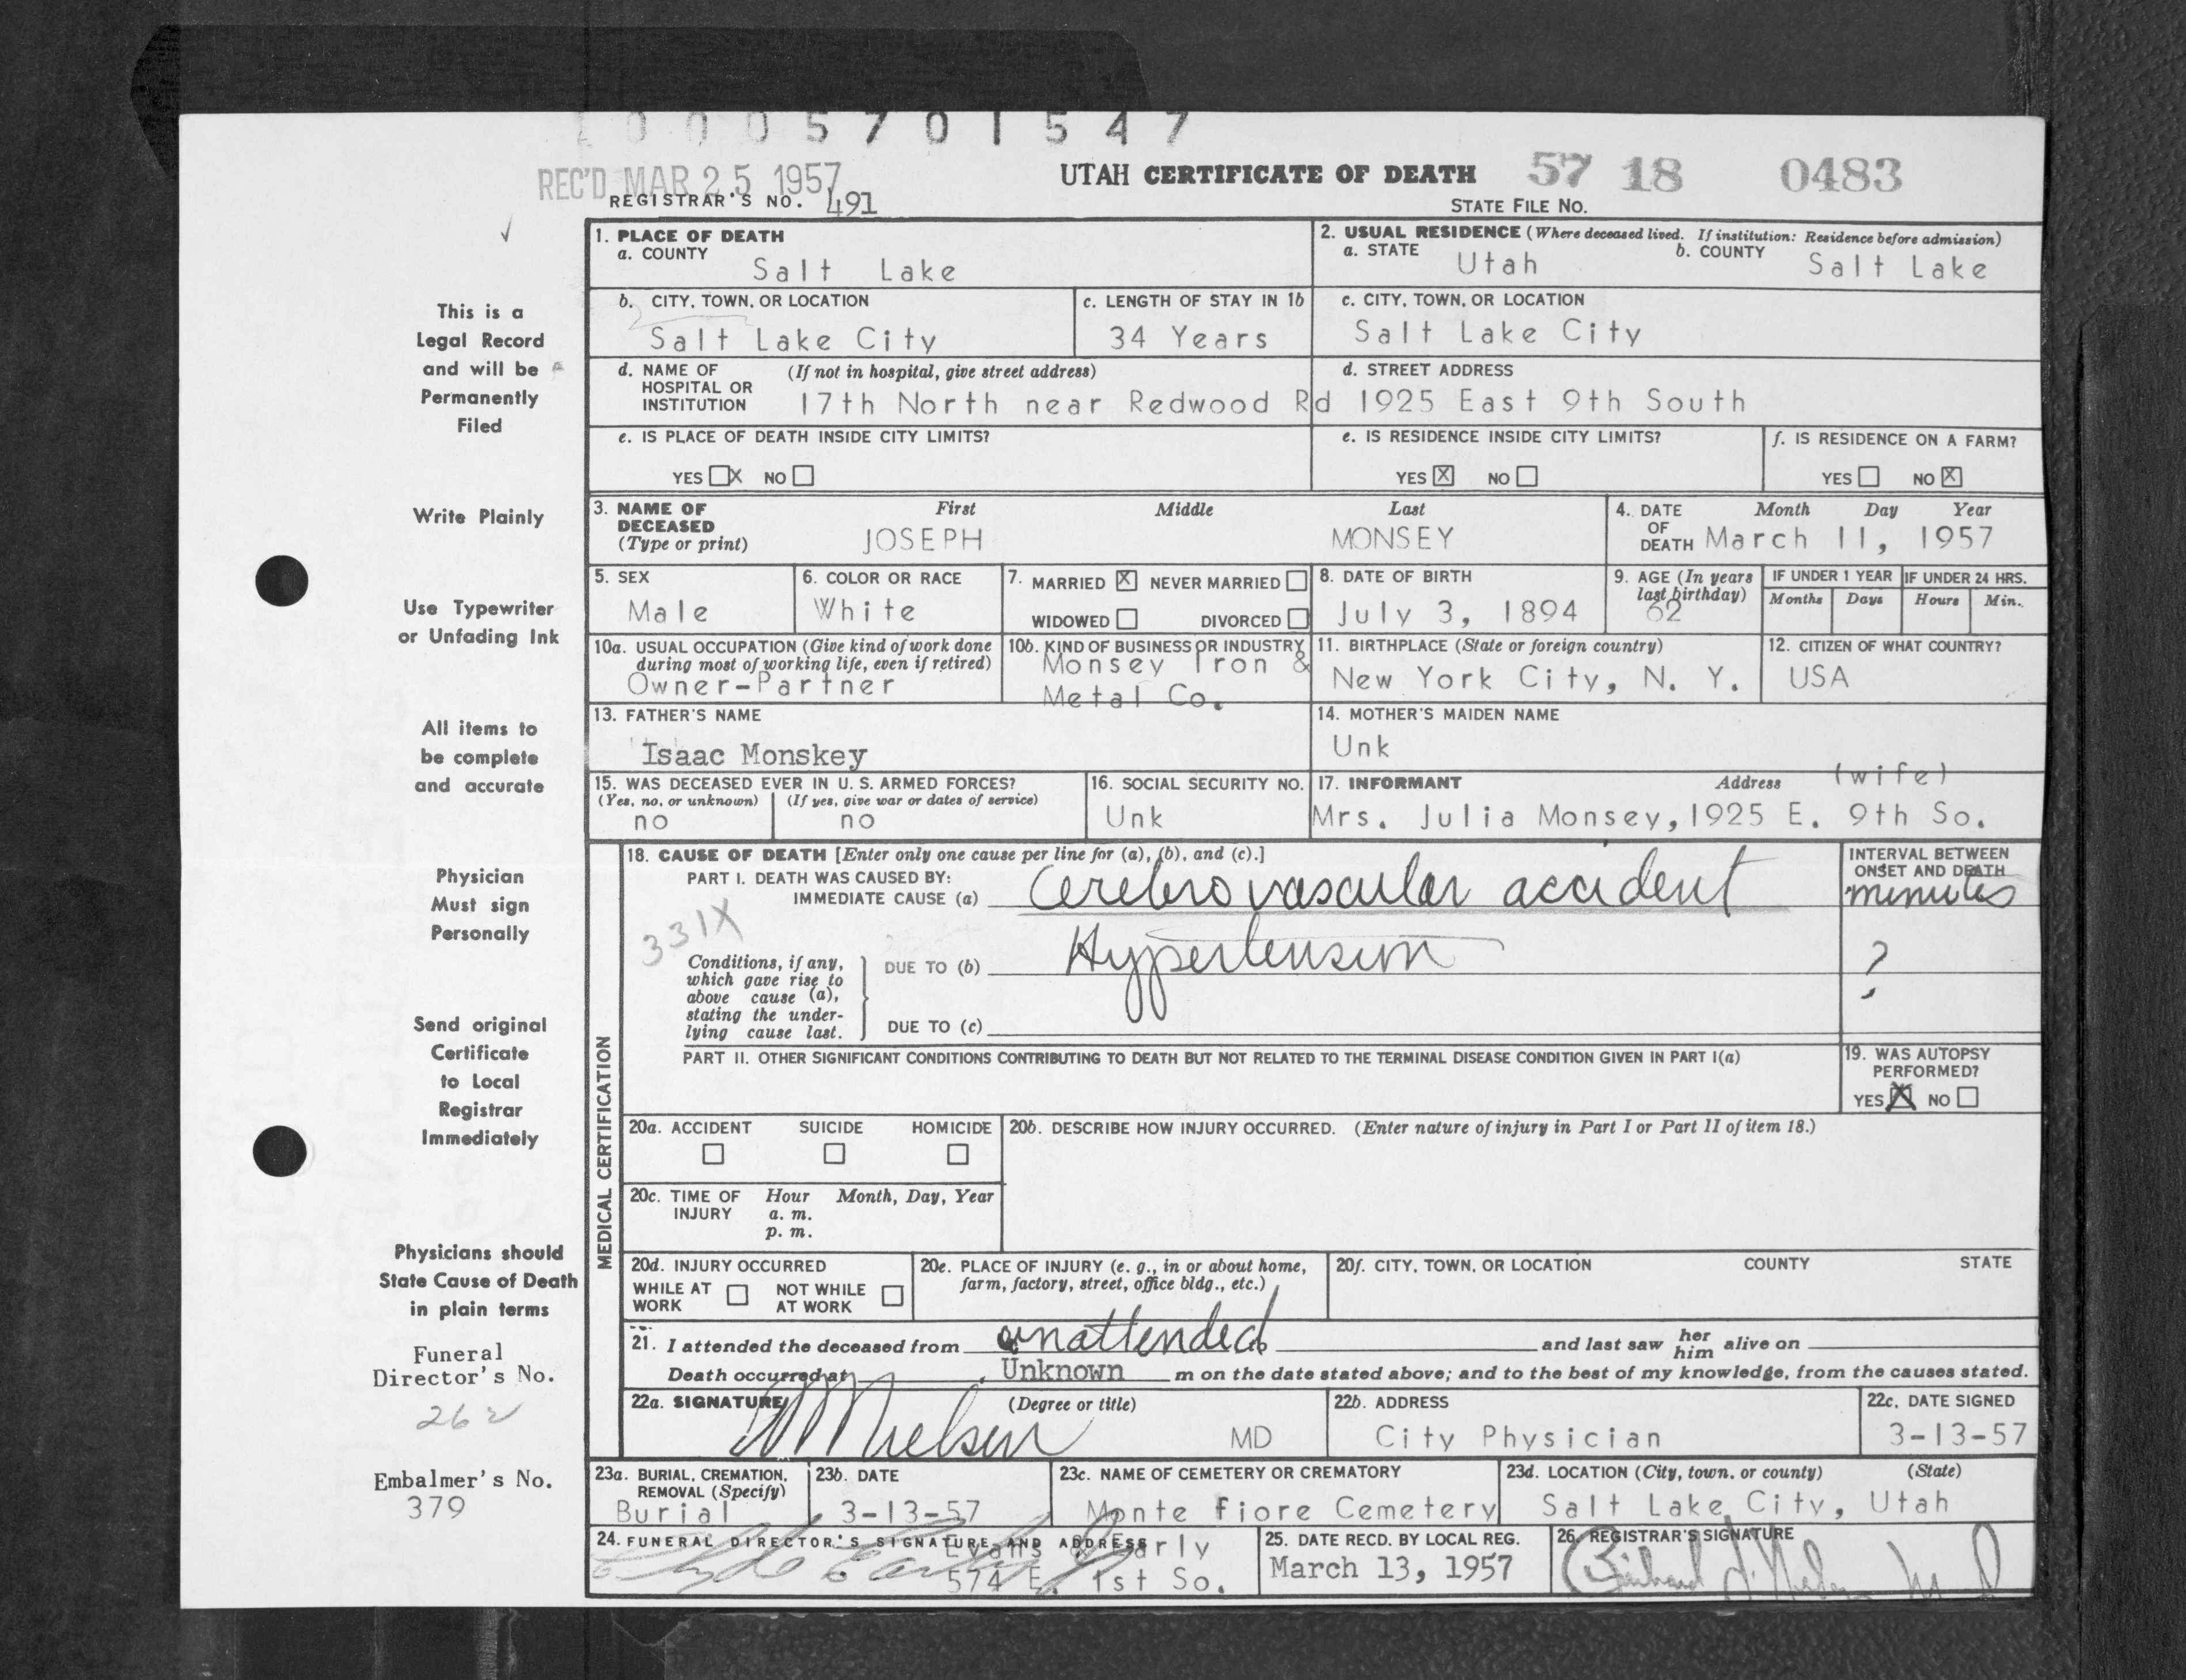 0005701547
REC'D MAR 25 1957
UTAH CERTIFICATE OF DEATH 57 18 0483
REGISTRAR'S NO. 491
STATE FILE NO.
1. PLACE OF DEATH
a. COUNTY
Salt Lake
2. USUAL RESIDENCE (Where deceased lived. If institution: Residence before admission)
a. STATE Utah b. COUNTY Salt Lake
b. CITY, TOWN, OR LOCATION
Salt Lake City
c. LENGTH OF STAY IN 1b
34 Years
c. CITY, TOWN, OR LOCATION
Salt Lake City
d. NAME OF HOSPITAL OR INSTITUTION (If not in hospital, give street address)
17th North near Redwood Rd
d. STREET ADDRESS
1925 East 9th South
e. IS PLACE OF DEATH INSIDE CITY LIMITS?
YES X NO
e. IS RESIDENCE INSIDE CITY LIMITS?
YES X NO
f. IS RESIDENCE ON A FARM?
YES NO X
3. NAME OF DECEASED (Type or print)
First Middle Last
JOSEPH MONSEY
4. DATE OF DEATH Month Day Year
March 11, 1957
5. SEX
Male
6. COLOR OR RACE
White
7. MARRIED X NEVER MARRIED
WIDOWED DIVORCED
8. DATE OF BIRTH
July 3, 1894
9. AGE (In years last birthday)
62
IF UNDER 1 YEAR
Months Days
IF UNDER 24 HRS.
Hours Min.
10a. USUAL OCCUPATION (Give kind of work done during most of working life, even if retired)
Owner-Partner
10b. KIND OF BUSINESS OR INDUSTRY
Monsey Iron &
Metal Co.
11. BIRTHPLACE (State or foreign country)
New York City, N. Y.
12. CITIZEN OF WHAT COUNTRY?
USA
13. FATHER'S NAME
Isaac Monskey
14. MOTHER'S MAIDEN NAME
Unk
15. WAS DECEASED EVER IN U. S. ARMED FORCES?
(Yes, no, or unknown) (If yes, give war or dates of service)
no no
16. SOCIAL SECURITY NO.
Unk
17. INFORMANT Address (wife)
Mrs. Julia Monsey, 1925 E. 9th So.
MEDICAL CERTIFICATION
18. CAUSE OF DEATH [Enter only one cause per line for (a), (b), and (c).]
PART I. DEATH WAS CAUSED BY:
IMMEDIATE CAUSE (a) Cerebrovascular accident
INTERVAL BETWEEN ONSET AND DEATH
minutes
331X
Conditions, if any, which gave rise to above cause (a), stating the underlying cause last.
DUE TO (b) Hypertension
?
DUE TO (c)
PART II. OTHER SIGNIFICANT CONDITIONS CONTRIBUTING TO DEATH BUT NOT RELATED TO THE TERMINAL DISEASE CONDITION GIVEN IN PART I(a)
19. WAS AUTOPSY PERFORMED?
YES X NO
20a. ACCIDENT SUICIDE HOMICIDE
20b. DESCRIBE HOW INJURY OCCURRED. (Enter nature of injury in Part I or Part II of item 18.)
20c. TIME OF INJURY Hour Month, Day, Year
a. m.
p. m.
20d. INJURY OCCURRED
WHILE AT WORK NOT WHILE AT WORK
20e. PLACE OF INJURY (e. g., in or about home, farm, factory, street, office bldg., etc.)
20f. CITY, TOWN, OR LOCATION COUNTY STATE
21. I attended the deceased from unattended and last saw her him alive on
Death occurred at Unknown m on the date stated above; and to the best of my knowledge, from the causes stated.
22a. SIGNATURE (Degree or title)
Nielsen MD
22b. ADDRESS
City Physician
22c. DATE SIGNED
3-13-57
23a. BURIAL, CREMATION, REMOVAL (Specify)
Burial
23b. DATE
3-13-57
23c. NAME OF CEMETERY OR CREMATORY
Monte Fiore Cemetery
23d. LOCATION (City, town, or county) (State)
Salt Lake City, Utah
24. FUNERAL DIRECTOR'S SIGNATURE AND ADDRESS
Evans & Early
574 E. 1st So.
25. DATE RECD. BY LOCAL REG.
March 13, 1957
26. REGISTRAR'S SIGNATURE
This is a
Legal Record
and will be
Permanently
Filed
Write Plainly
Use Typewriter
or Unfading Ink
All items to
be complete
and accurate
Physician
Must sign
Personally
Send original
Certificate
to Local
Registrar
Immediately
Physicians should
State Cause of Death
in plain terms
Funeral
Director's No.
262
Embalmer's No.
379